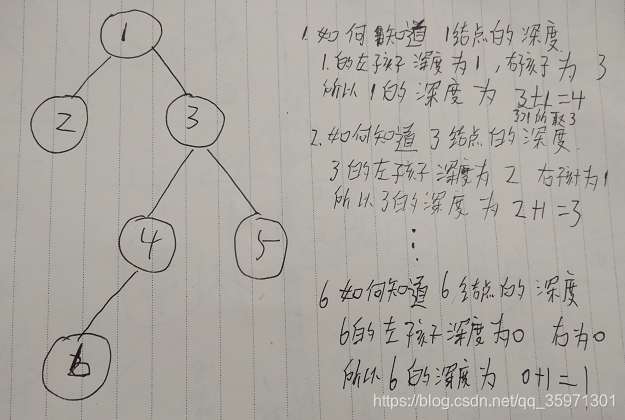 1
2
3
4
5
6
1. 如何知道 1结点的深度
1.的左孩子深度为1,右孩子为 3
所以1的深度为 3+1=4
3>1所以取3
2.如何知道 3 结点的深度
3的左孩子深度为 2 右孩子为1
所以3的深度为 2+1=3
⋮
6 如何知道 6 结点的深度
6的左孩子深度为0 右为0
所以6的深度为 0+1=1
https://blog.csdn.net/qq_35971301